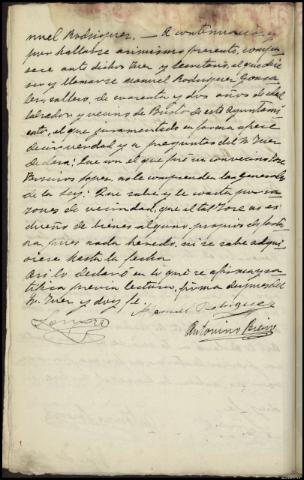 nuel Rodriguez. — A continuacion y
por hallarse asimismo presente, compa-
rece ante dicho Juez y Secretario, el que di-
ce ser y llamarse Manuel Rodriguez Gonza-
lez, soltero, de cuarenta y dos años de edad
labrador y vecino de este Ayuntami-
ento, el que juramentado en forma ofrece
decir verdad y a preguntas del Sr. Juez
declara: Que con el que fué su convecino José
Lopez, no le comprenden las Generales
de la ley: Que sabe y le consta por ra-
zones de vecindad, que el tal José no es
dueño de bienes alguno, propios
pues nada heredó, ni se sabe adqui-
riese hasta la fecha
Asi lo declaró en lo que se afirma y ra-
tifica previa lectura, firma despues del
Sr. Juez y doy fé
Manuel Rodriguez
Antonino